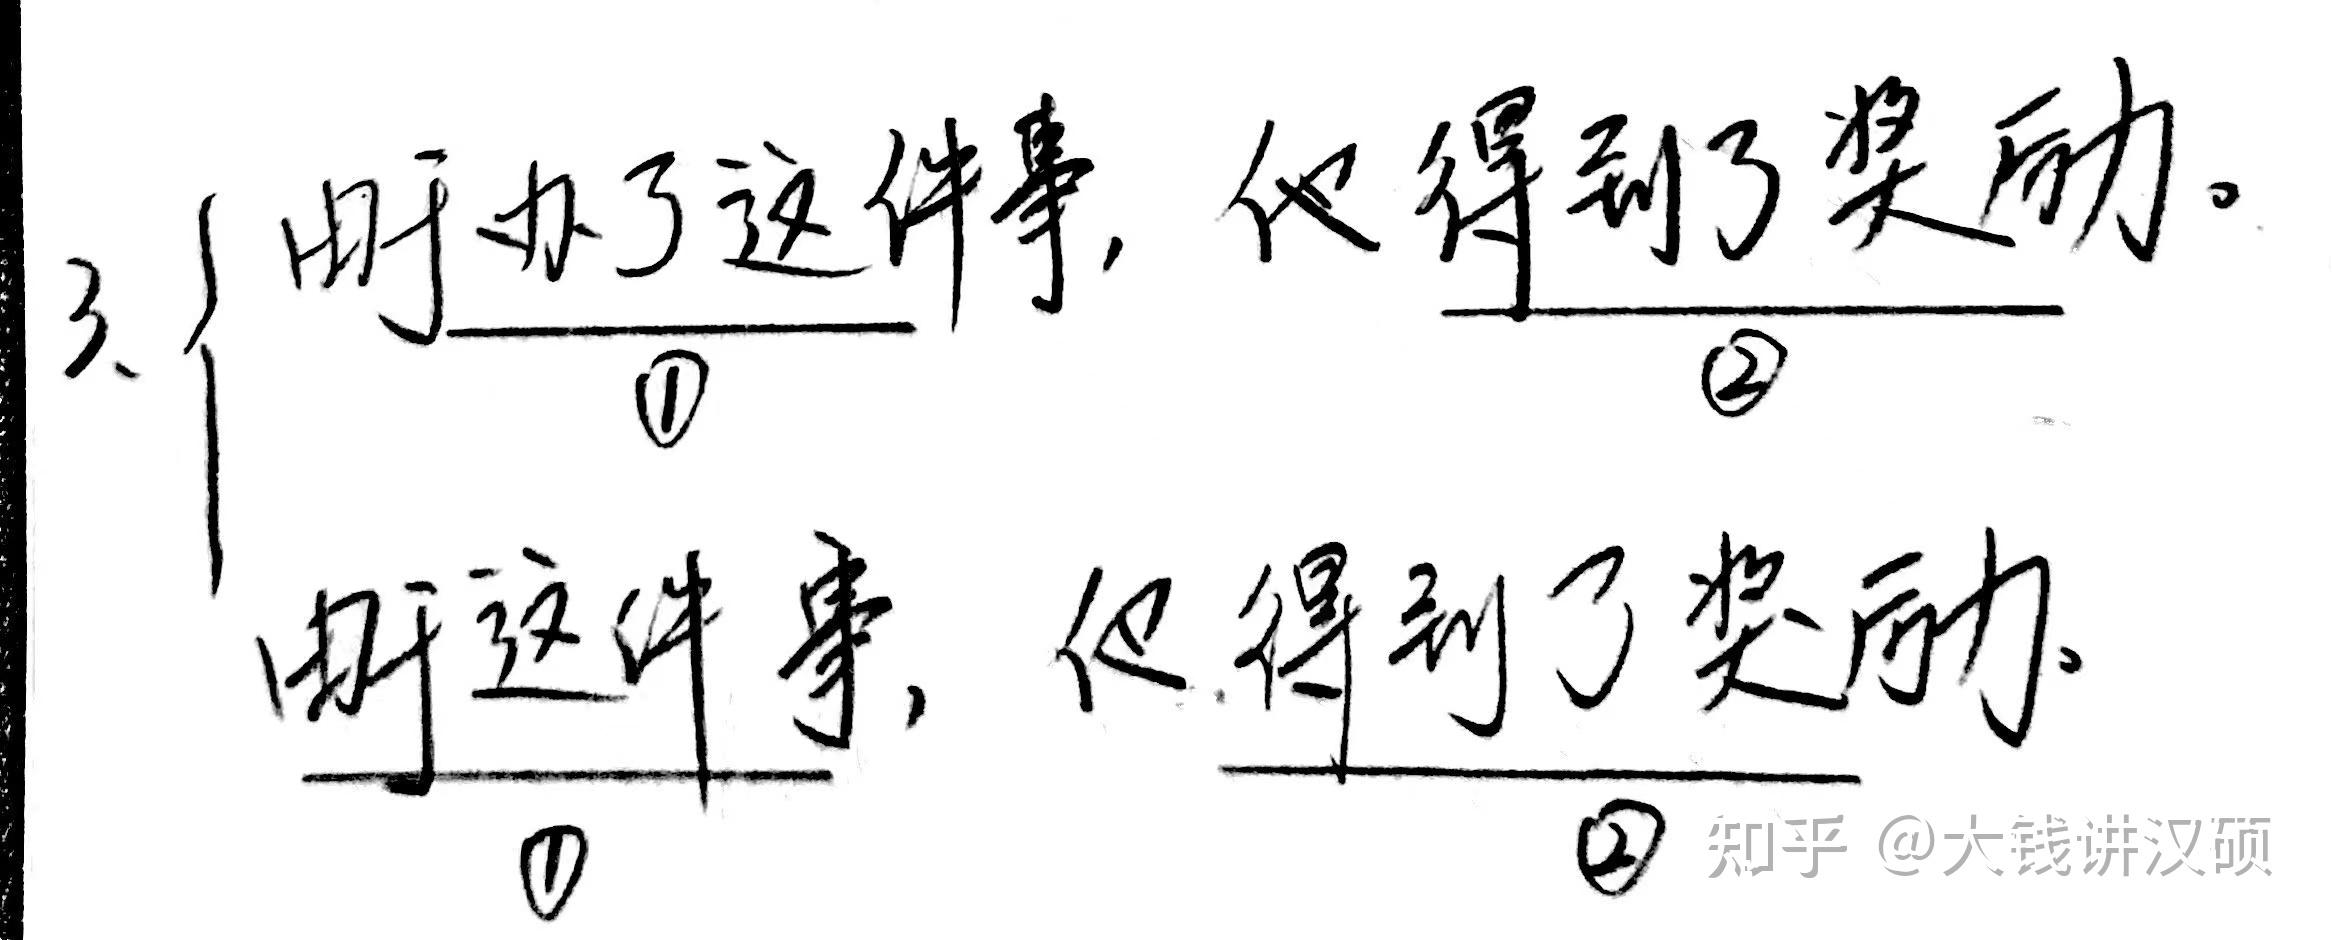 3、由于办了这件事，他得到了奖励。
① ②
由于这件事，他得到了奖励。
① ②
知乎 @大钱讲汉硕